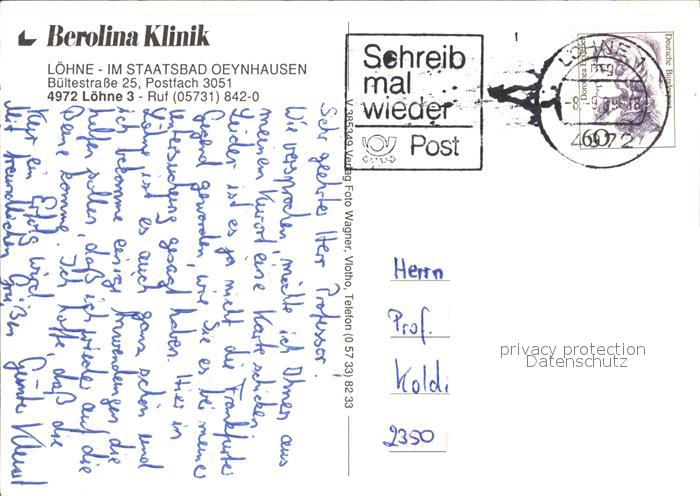 Berolina Klinik
LÖHNE - IM STAATSBAD OEYNHAUSEN
Bültestraße 25, Postfach 3051
4972 Löhne 3 - Ruf (05731) 842-0
Schreib
mal
wieder
Post
LÖHNE 1
4972
60
Deutsche Bundespost
V 385349 Verlag Foto Wagner, Vlotho, Telefon (0 57 33) 82 33
Sehr geehrter Herr Professor!
Wie versprochen, möchte ich Ihnen aus
meinem Kurort eine Karte schicken.
Leider ist es ja nicht die Frankfurter
Gegend geworden, wie Sie es bei meiner
Untersuchung gesagt haben. Hier in
Löhne ist es auch ganz schön und
ich bekomme einige Anwendungen die
helfen sollen, daß ich wieder auf die
Beine komme. Ich hoffe, daß die
Kur ein Erfolg wird.
Mit freundlichen Grüßen
Günter
Herrn
Prof.
Koldi
2350
privacy protection
Datenschutz